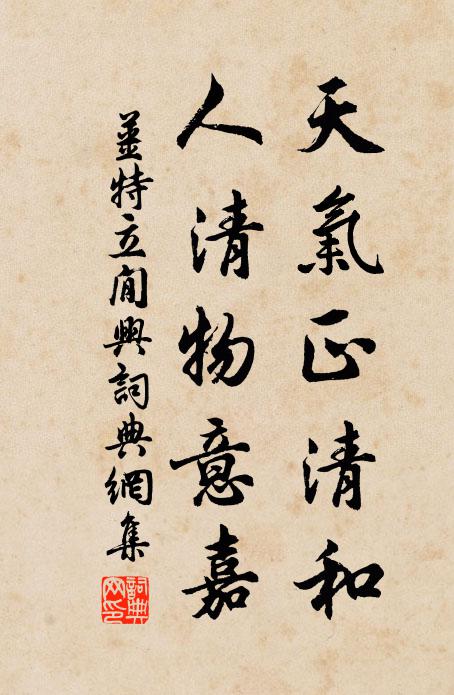 天氣正清和
人清物意嘉
姜特立閒興詞典網集
詞典
网印